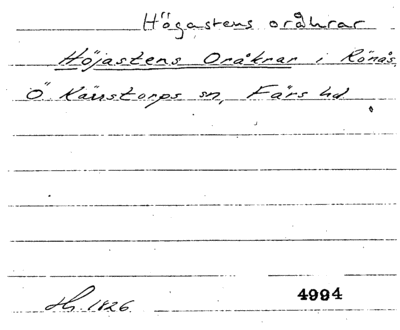 Högastens oråkrar
Höjastens Oråkrar i Rönås,
Ö Kärrstorps sn, Färs hd
Hg. 1826. 4994